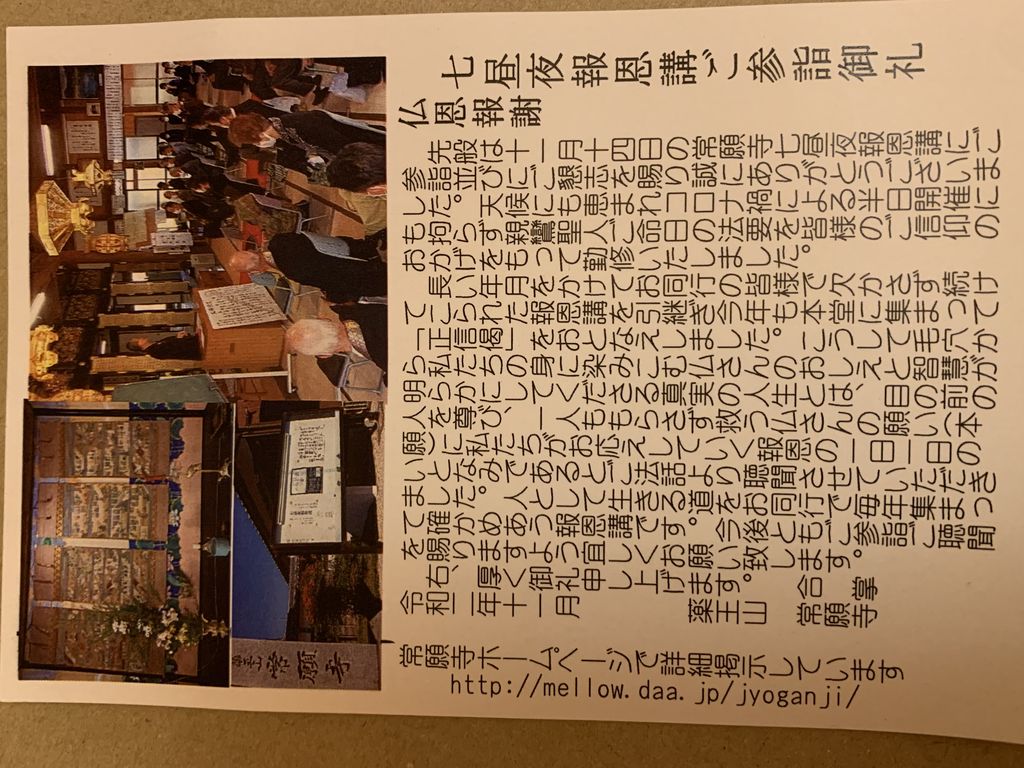 七昼夜報恩講ご参詣御礼
仏恩報謝
先般は十一月十四日の常願寺七昼夜報恩講にご
参詣並びにご懇志を賜り誠にありがとうございま
した。天候にも恵まれコロナ禍による半日開催に
も拘らず親鸞聖人ご命日の法要を皆様のご信仰の
おかげをもって勤修いたしました。
長い年月をかけてお同行の皆様で欠かさず続けて
こられた報恩講を引継ぎ今年も本堂に集まって
「正信偈」をおとなえしました。こうして毛穴か
ら私たちの身に染みこむ仏さんのおしえと智慧が
明らかにしてくださる真実の人生とは、目の前の
人を尊び、一人ももらさず救う仏さんの願い(本
願)に私たちがお応えしていく報恩の一日一日の
いとなみであるとご法話より聴聞させていただき
ました。人として生きる道をお同行で毎年集まっ
て確かめあう報恩講です。今後ともご参詣ご聴聞
を賜りますよう宜しくお願い致します。
右、厚く御礼申し上げます。 合掌
令和二年十一月
薬王山 常願寺
常願寺ホームページで詳細掲示しています
http://mellow.daa.jp/jyoganji/
常願寺